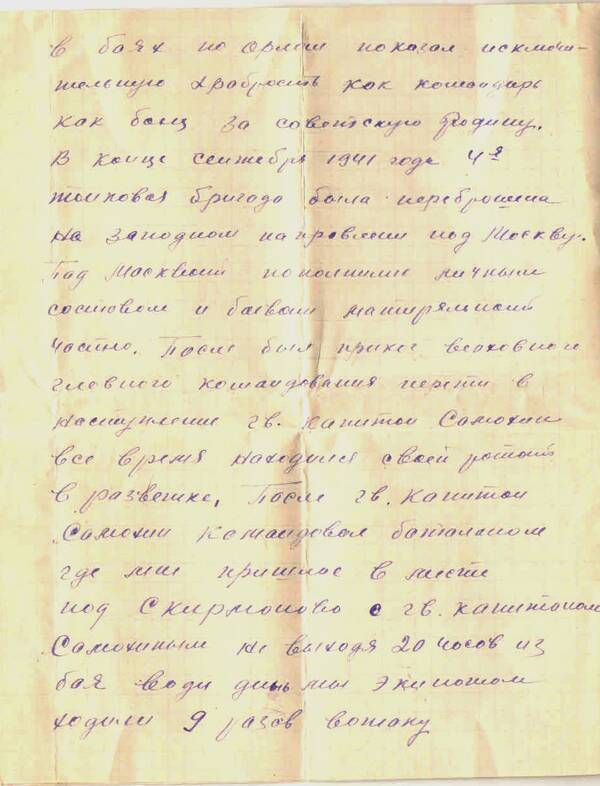 в баях по Орлом показал исключи-
тельную храбрость как командирь
как боец за советскую Родину.
В конце сентебря 1941 года 4я
танковая бригада была переброшена
на западном направлении под Москву.
Под Масквой пополнились личным
составом и баевой матиряльной
частью. После был приказ верховного
главного командования перети в
наступление гв. капитан Самохин
все время находился своей ротой
в разветке, После гв. капитан
Самохин командовал баталеном
где мне пришлос в месте
под Скирманово с гв. капитаном
Самохиным не выходя 20 часов из
бая води день мы экипажом
ходили 9 разов ватаку